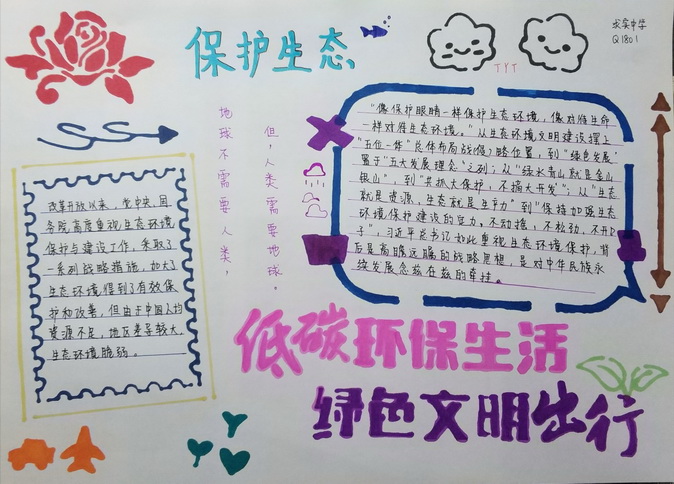 保护生态
求实中学
Q1801
TYT
地球不需要人类，
但，人类需要地球。
改革开放以来，党中央、国
务院高度重视生态环境
保护与建设工作，采取了
一系列战略措施，加大了
生态环境得到了有效保
护和改善，但由于中国人均
资源不足，地区差异较大，
生态环境脆弱。
“像保护眼睛一样保护生态环境，像对雁生命
一样对雁生态环境，”从生态环境文明建设摆上
“五位一体”总体布局战略位置，到“绿色发展”
置于“五大发展理念”之列；从“绿水青山就是金山
银山”，到“共抓大保护，不搞大开发”；从“生态
就是资源，生态就是生产力”到“保持加强生态
环境保护建设的定力，不动摇，不松劲，不开口
子”，习近平总书记如此重视生态环境保护，背
后是高瞻远瞩的战略思想，是对中华民族永
续发展念兹在兹的牵挂。
低碳环保生活
绿色文明出行